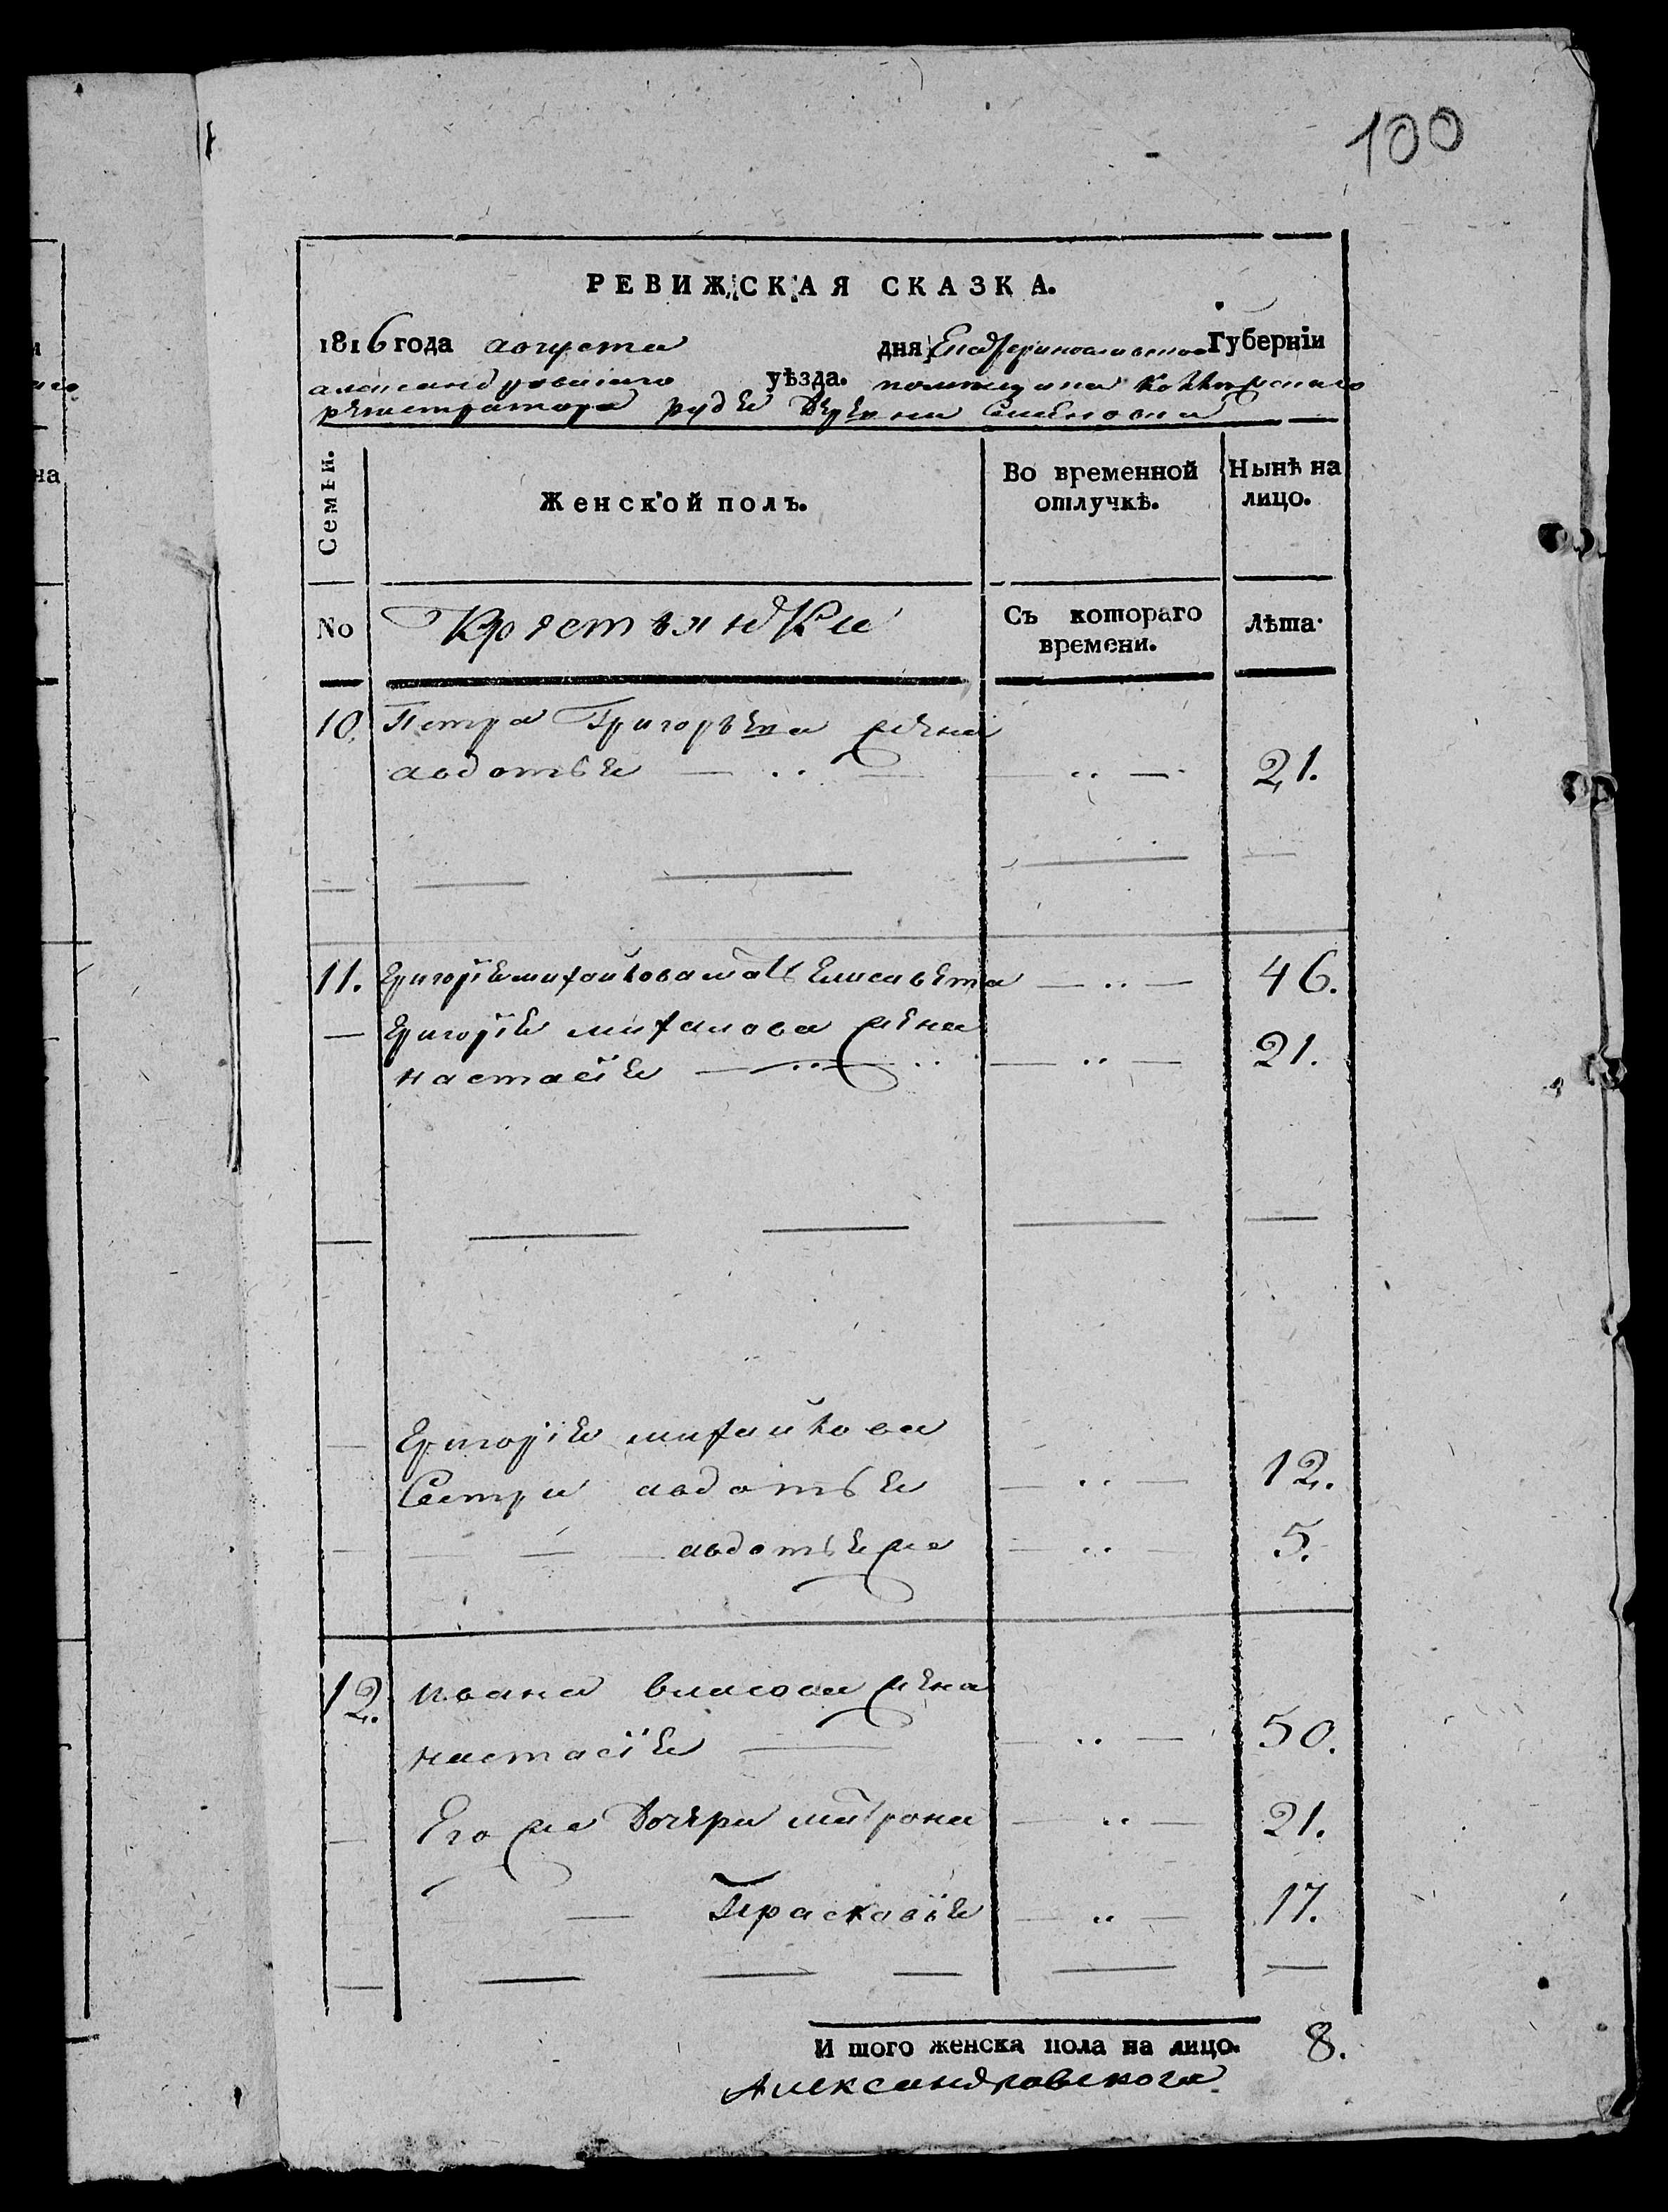 100
РЕВИЖСКАЯ СКАЗКА.
1816 года августа дня Екатеринославской Губерніи
александровского уѣзда. помещика Коллежскаго
регистратора рудѣ деревни Семеновки
Семьи. Женской полъ. Во временной отлучкѣ. Нынѣ на лицо.
No Крестьянки Съ котораго времени. Лѣта.
10. Петра Григорьева жена
авдотья — 21.
11. Григорія михайлова мать Елисавета — 46.
— Григорія михалова жена
настасія — 21.
— Григорія михайлова
Сестри авдотья — 12.
— авдотья же — 5.
12. ивана власова жена
настасія — 50.
— Его же Дочери матрона — 21.
— Прасковія — 17.
И того женска пола на лицо. 8.
Александровскога